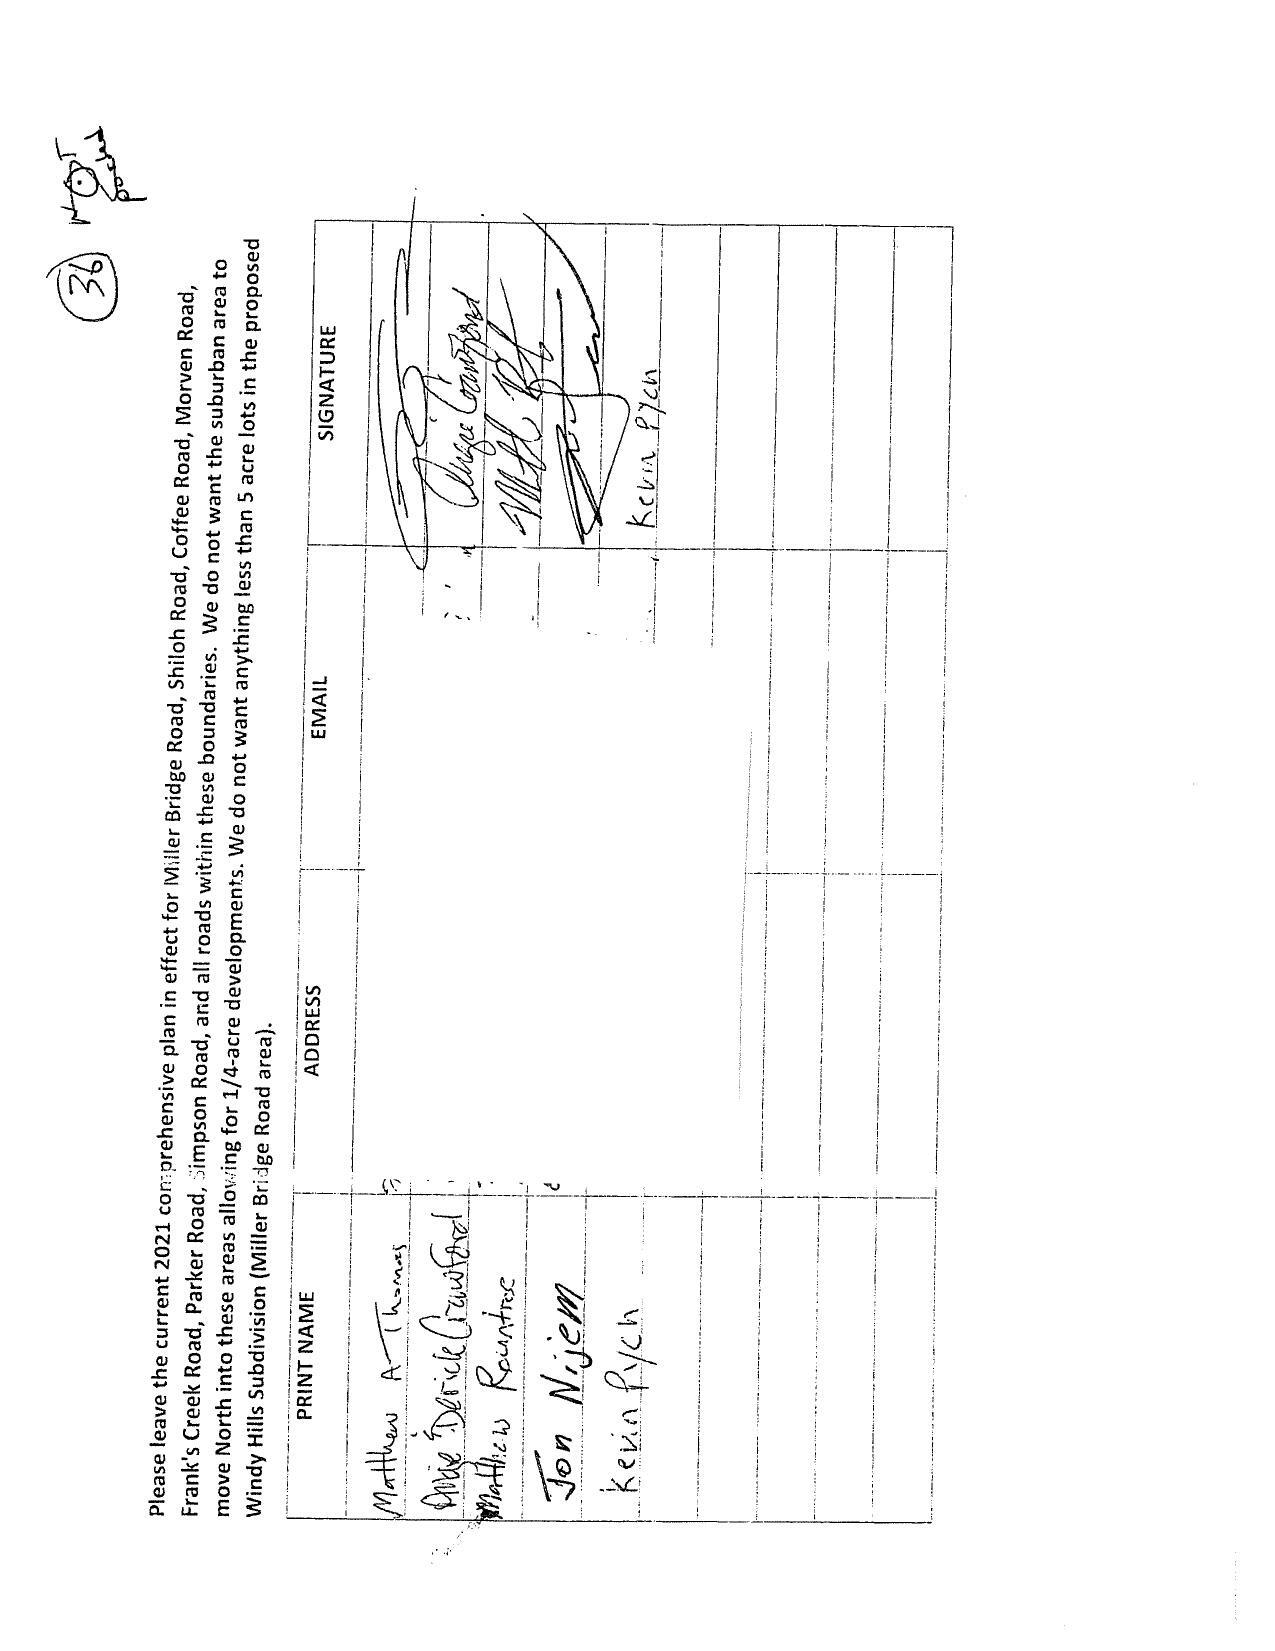 36 NOT
Please leave the current 2021 comprehensive plan in effect for Miller Bridge Road, Shiloh Road, Coffee Road, Morven Road,
Frank's Creek Road, Parker Road, Simpson Road, and all roads within these boundaries. We do not want the suburban area to
move North into these areas allowing for 1/4-acre developments. We do not want anything less than 5 acre lots in the proposed
Windy Hills Subdivision (Miller Bridge Road area).
PRINT NAME ADDRESS EMAIL SIGNATURE
Matthew A Thomas
Angie Derick Crawford Angie Crawford
Matthew Rountree
Jon Nijem
Kevin Pych Kevin Pych